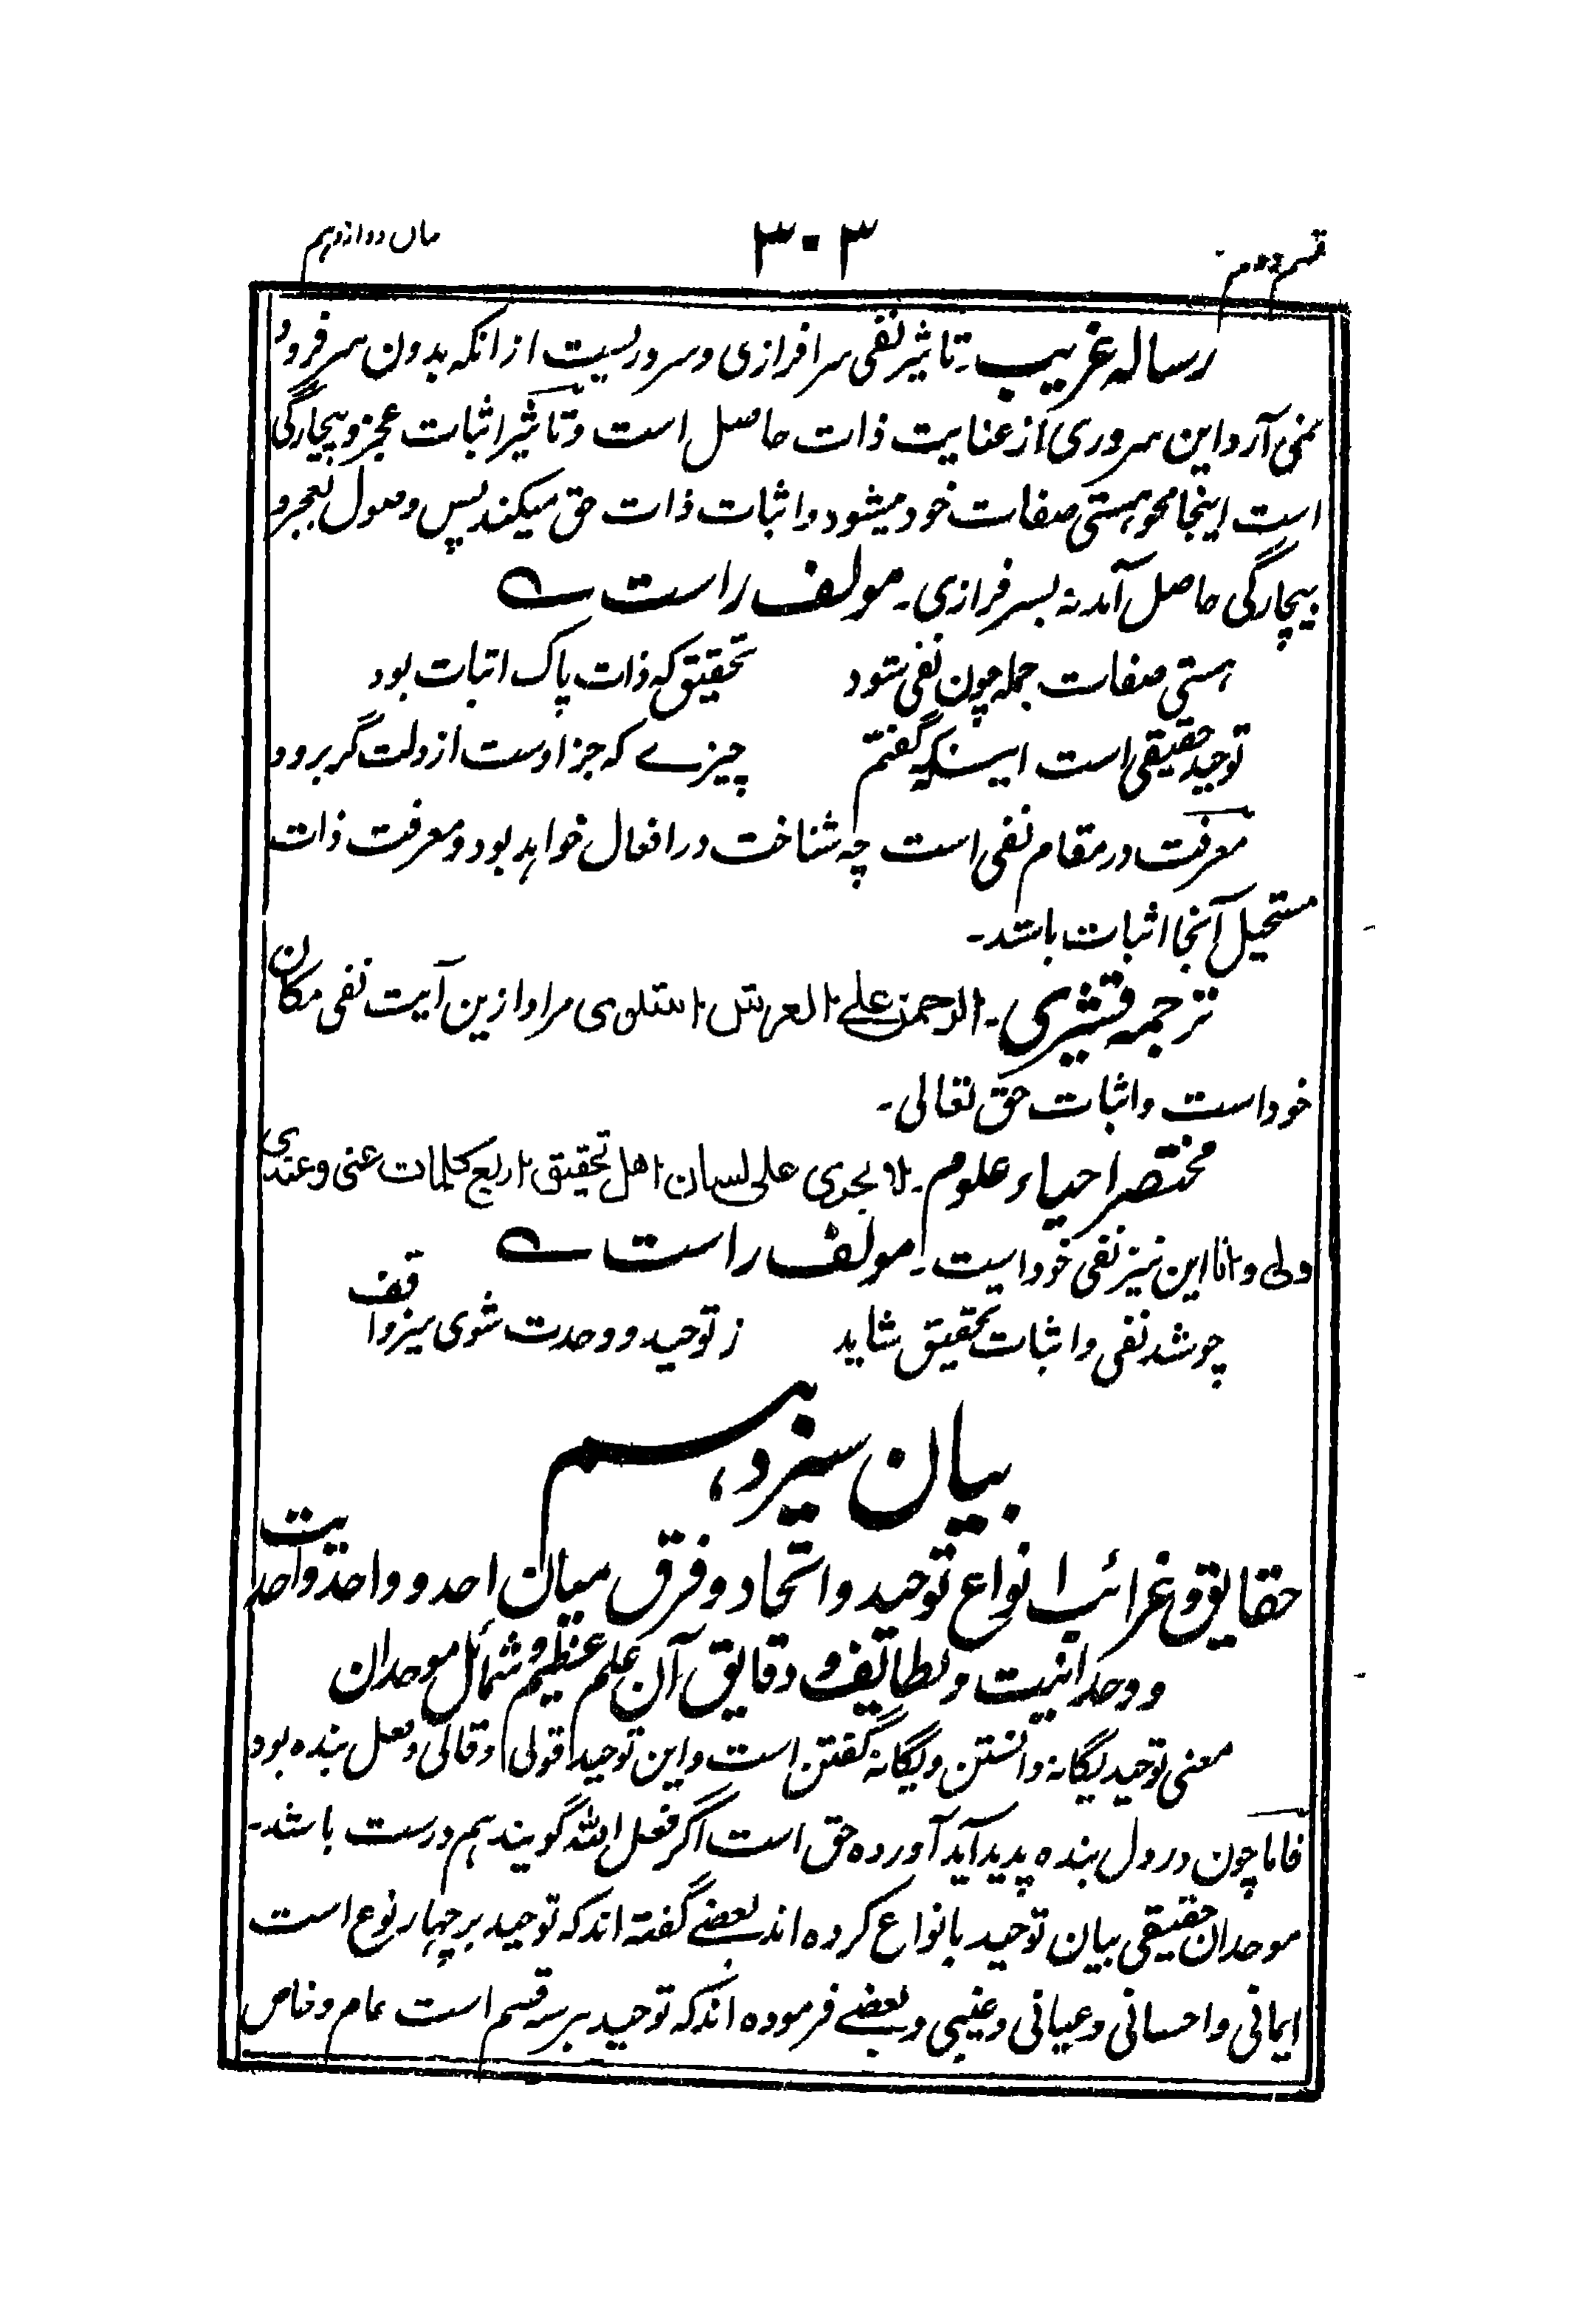 قسم دوم ۳۰۳ بیان دوازدہم
رسالہ غریب۔ تاثیر نفی سرافرازی و سروریست ازانکہ بدون سر فرود
نمی آرد و این سروری از عنایت ذات حاصل است و تاثیر اثبات عجز و بیچارگی
است اینجا محو ہستی صفات خود میشود و اثبات ذات حق میکند پس وصول بعجز و
بیچارگی حاصل آمد نہ بسرفرازی۔ مولف راست ؎
ہستی صفات جملہ چون نفی شود تحقیق کہ ذات پاک اثبات بود
توحید حقیقی است اینکہ گفتم چیزے کہ جز اوست از دلت گر برود
معرفت در مقام نفی است چہ شناخت در افعال خواہد بود و معرفت ذات
مستحیل آنجا اثبات باشد۔
ترجمہ قشیری۔ الرحمن علے العرش استوی مراد ازین آیت نفی مکان
خود است و اثبات حق تعالی۔
مختصر احیاء علوم۔ لا یجری علی لسان اھل تحقیق اربع کلمات عنی و عندی
ولی و انا این نیز نفی خود است۔ مولف راست ؎
چو شد نفی و اثبات تحقیق شاید ز توحید و وحدت شوی نیز واقف
بیان سیزدہم
حقایق و غرائب انواع توحید و اتحاد و فرق میان احد و واحد و احدیت
و وحدانیت و لطائف و دقایق آن علم عظیم و شمائل موحدان
معنی توحید یگانہ دانستن و یگانہ گفتن است و این توحید قولی و قالی و فعل بندہ بود
فاما چون در دل بندہ پدید آید آوردہ حق است اگر فعل اللہ گویند ہم درست باشد۔
موحدان حقیقی بیان توحید بانواع کردہ اند بعضے گفتہ اند کہ توحید بر چہار نوع است
ایمانی و احسانی و عیانی و غیبی و بعضے فرمودہ اند کہ توحید بر سہ قسم است عام و خاص